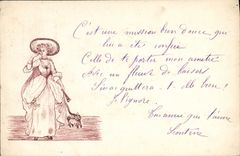 C'est une mission bien douce que
lui a été confiée
Celle de te porter mon amitié
Avec un fleuve de baisers
S'en acquittera-t-elle bien ?
Je l'ignore.
Ton amie qui t'aime